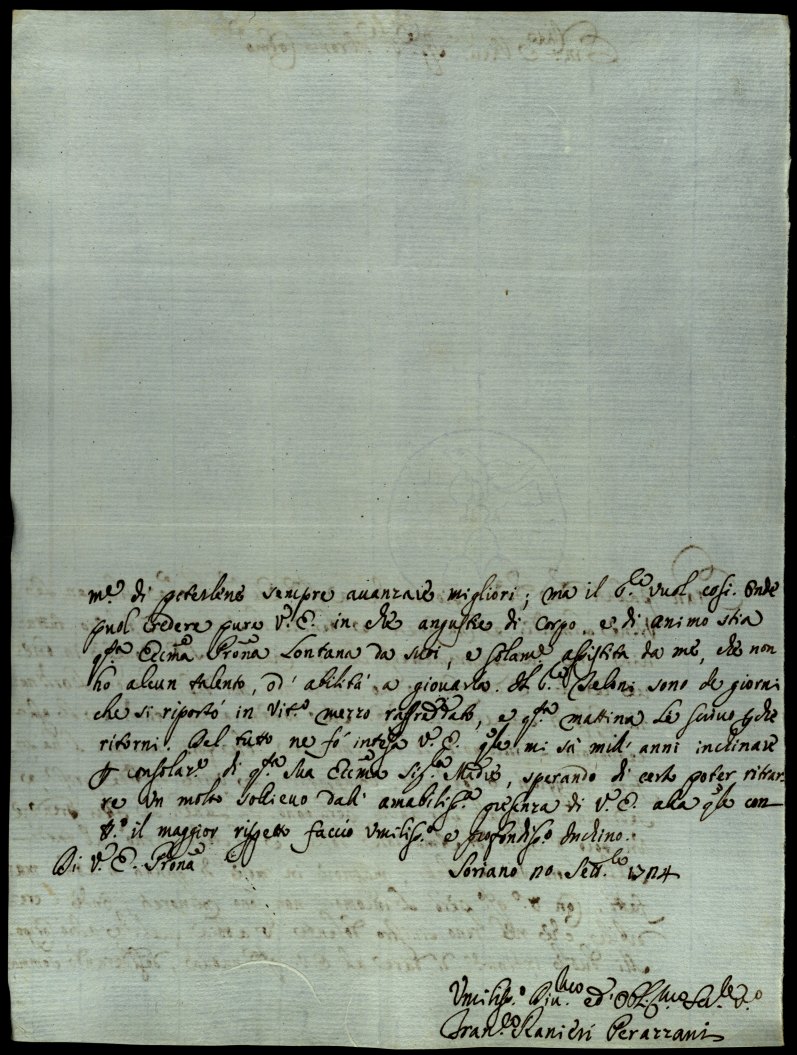 me di poterlene sempre avanzare migliori; ma il vuol così. Onde
puol credere pura V. E. in che angustie di Corpo, e di animo stia
qsta Eccma Prona Lontana da suoi, e solame assistita da me, che non
ho alcun talento, o d' abilità a giovarla. Il Seloni sono de giorni
che si riportò in Vito mezzo raffreddato, e qsta mattina Le scrivo pche
ritorni. Del tutto ne fò intesa V. E. qle mi sà mill' anni inchinare
p consolare di qsta sua Eccma Sigra Madre, sperando di certo poter ritrar
re un molto sollievo dall' amabilissa presenza di V. E. alla qle con
tto il maggior rispetto faccio Umilisso e profondisso Inchino.
Di V. E. Prona
Soriano 20 1724
Umilisso ed Obblmo
Franco Ranieri Perazzani